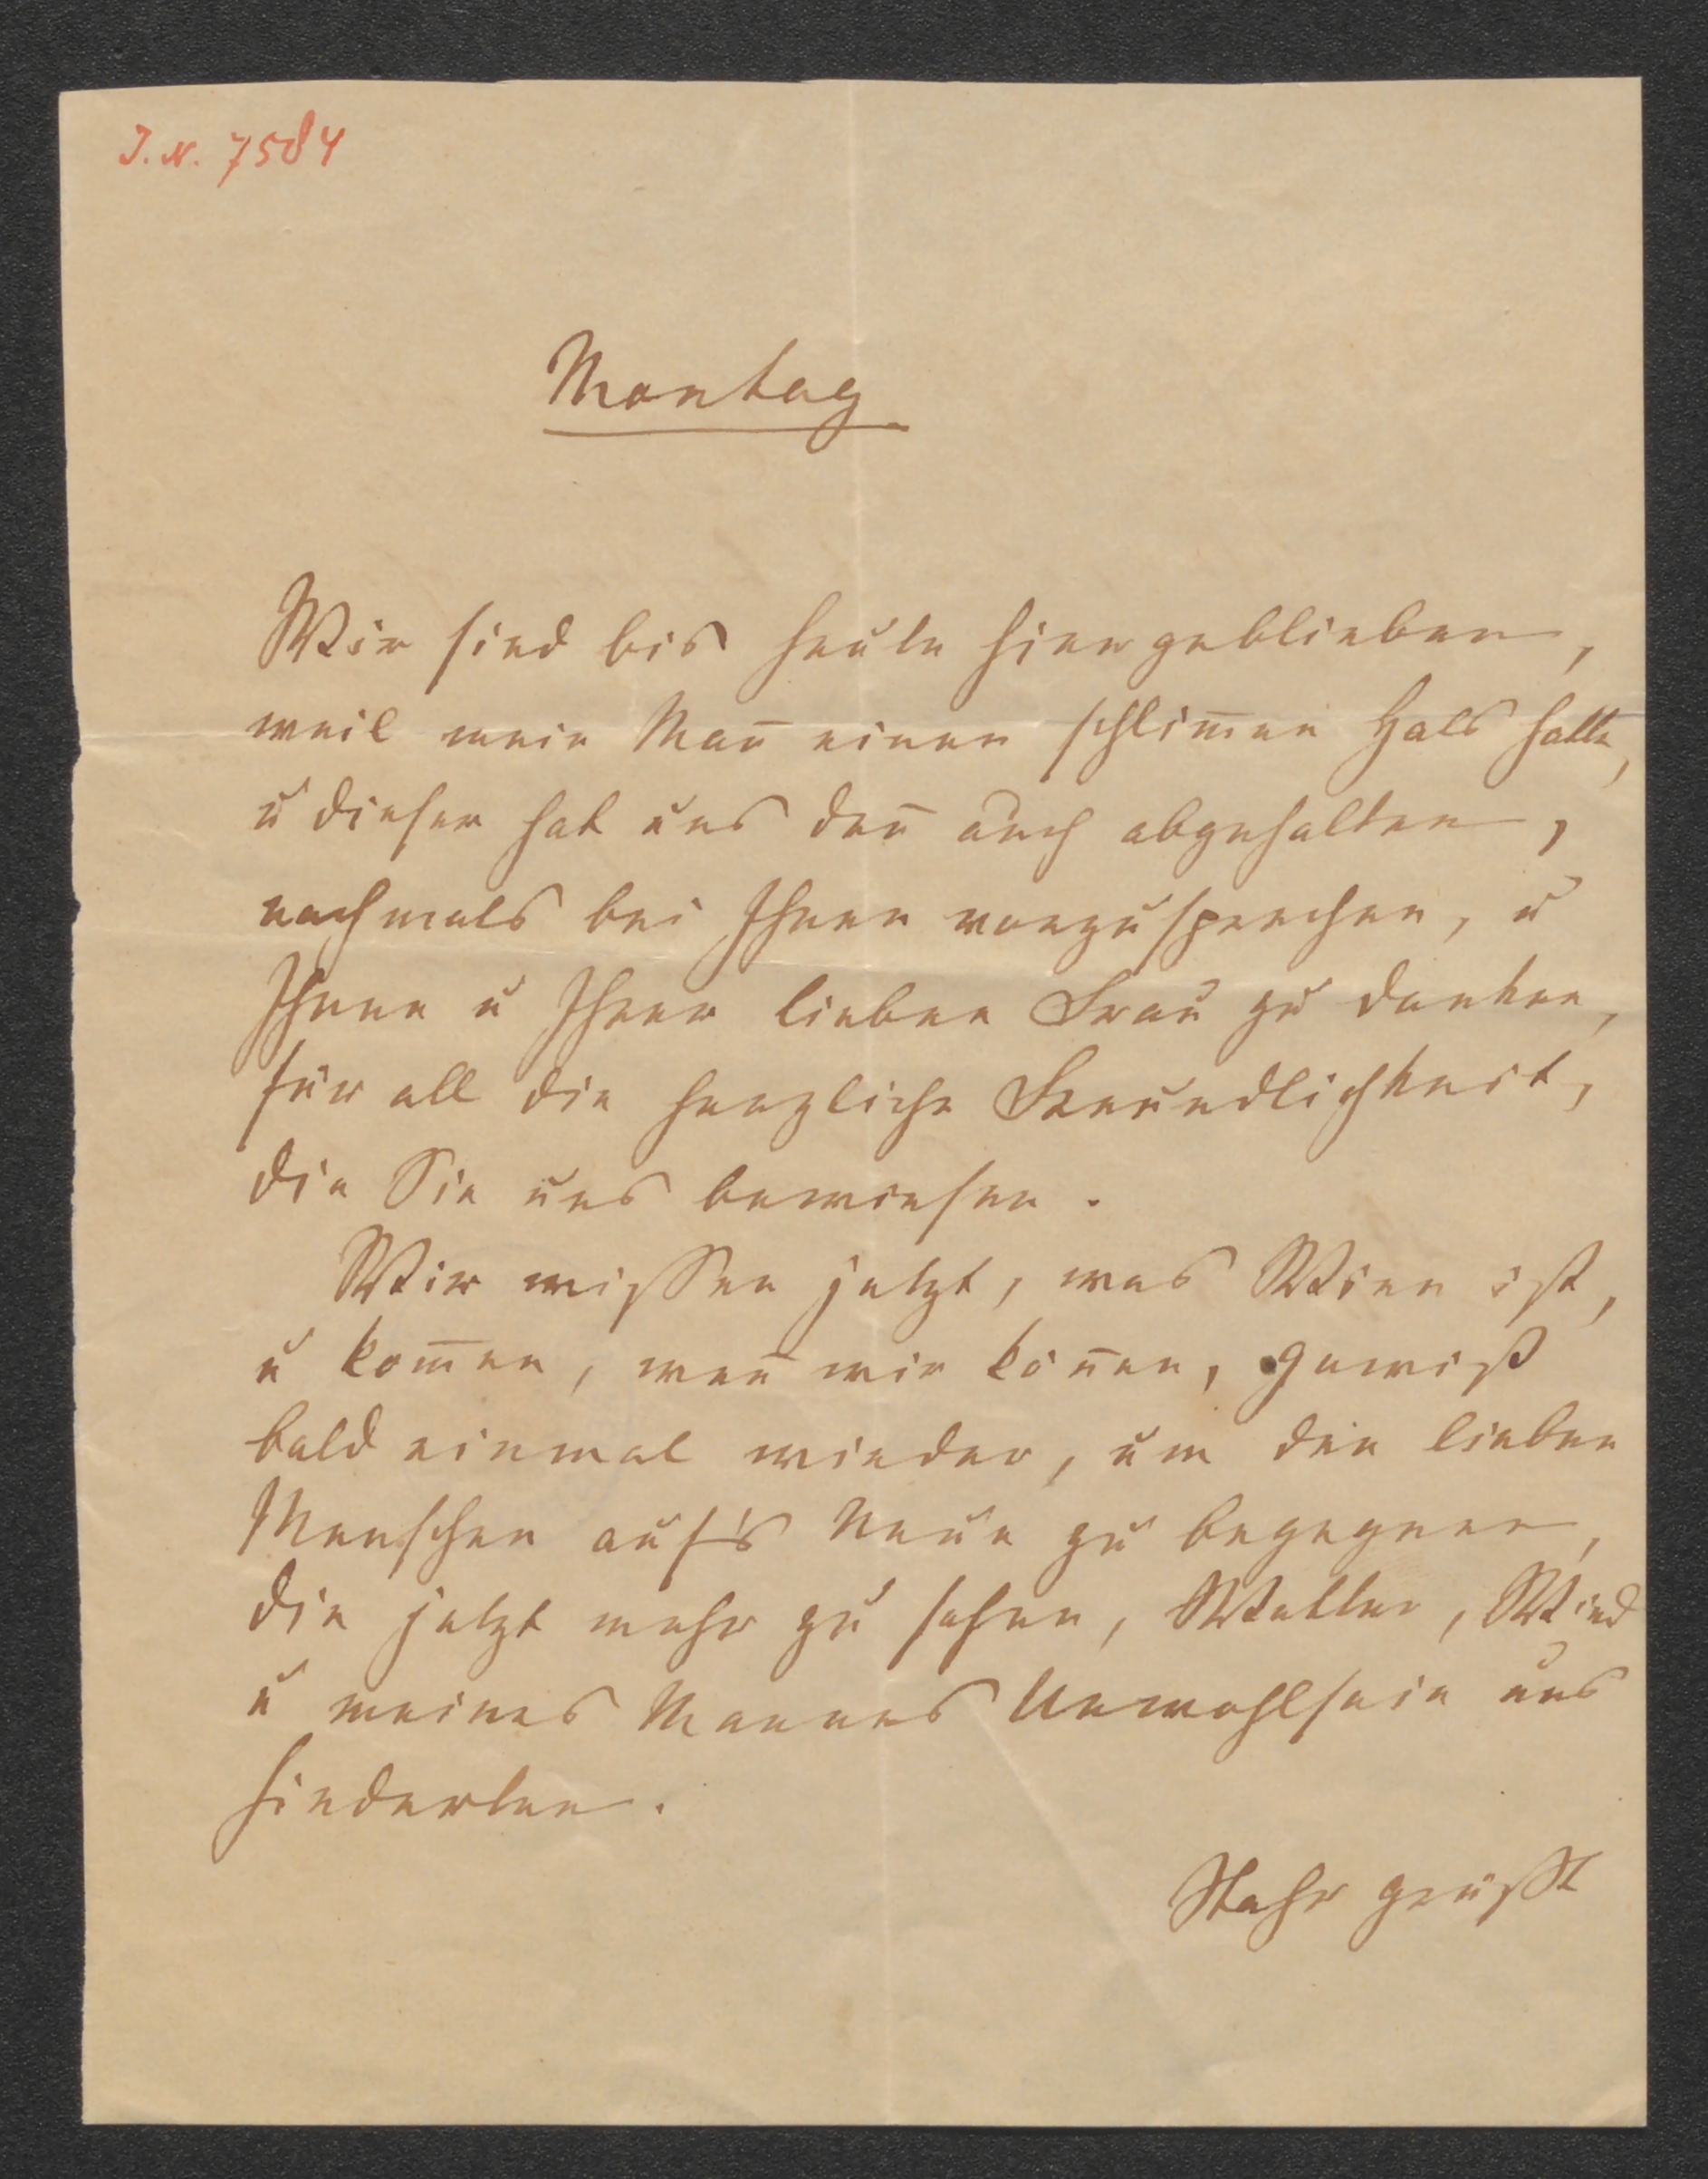 J. N. 7584
Montag
Wir sind bis heute hier geblieben,
weil mein Man̅ einen schlim̅en Hals hatte,
u dieser hat uns den̅ auch abgehalten,
nochmals bei Ihnen vorzusprechen, u
Ihnen u Ihrer lieben Frau zu danken,
für all die herzliche Freundlichkeit,
die Sie uns bewiesen.
Wir wissen jetzt, was Wien ist,
u kom̅en, wen̅ wir kön̅en, gewiß
bald einmal wieder, um den lieben
Menschen auf's Neue zu begegnen,
die jetzt mehr zu sehen, Wetter, Wind
u meines Mannes Unwohlsein uns
hinderten.
Stahr grüßt